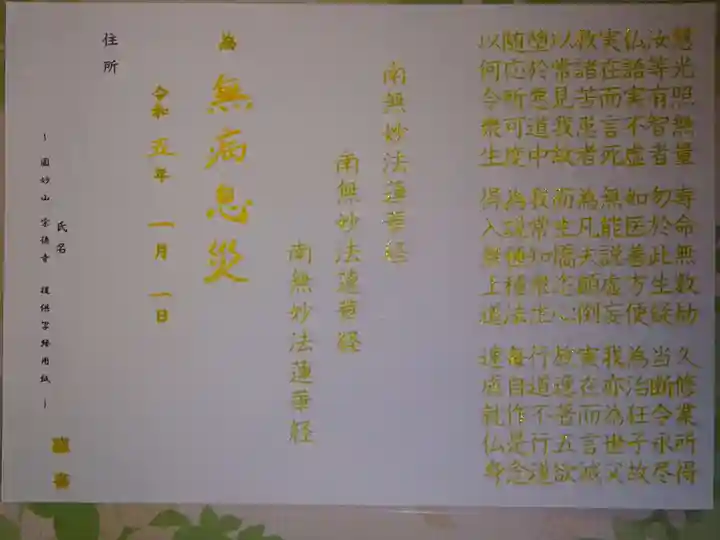 慧光照無量 寿命無数劫 久修業所得
汝等有智者 勿於此生疑 当断令永尽
仏語実不虚 如医善方便 為治狂子故
実在而言死 無能説虚妄 我亦為世父
救諸苦患者 為凡夫顛倒 実在而言滅
以常見我故 而生憍恣心 放逸著五欲
墮於悪道中 我常知衆生 行道不行道
随応所可度 為説種種法 毎自作是念
以何令衆生 得入無上道 速成就仏身
南無妙法蓮華経
南無妙法蓮華経
南無妙法蓮華経
為 無病息災
令和五年 一月一日
住所
氏名
~ 国妙山 宗徳寺 提供写経用紙 ~
謹書